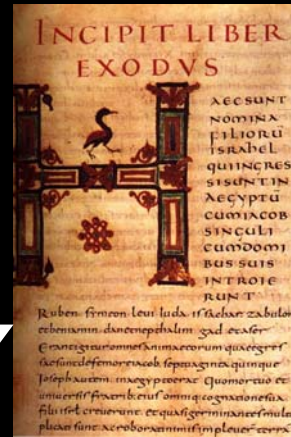 INCIPIT LIBER
EXODVS
H
AECSUNT
NOMINA
FILIORŪ
ISRAHEL
QUIINGRES
SISUNTIN
AEGYPTŪ
CUMIACOB
SINGULI
CUMDOMI
BUS SUIS
INTROIE
RUNT
Ruben symeon leui Juda issachar zabulon
etbeniamin. danetnepthalim gad etaser
Erantigituromnesanimaeeorum quaeegres
saesuntdefemoreiacob. septuaginta quinque
Joseph autem inaegyptoerat Quomortuo et
uniuersis fratrib; eius omniq; cognationesua
filii isrl creuerunt. et quasigerminantesmulti
plicati sunt. acroboratinimis impleuer terrā